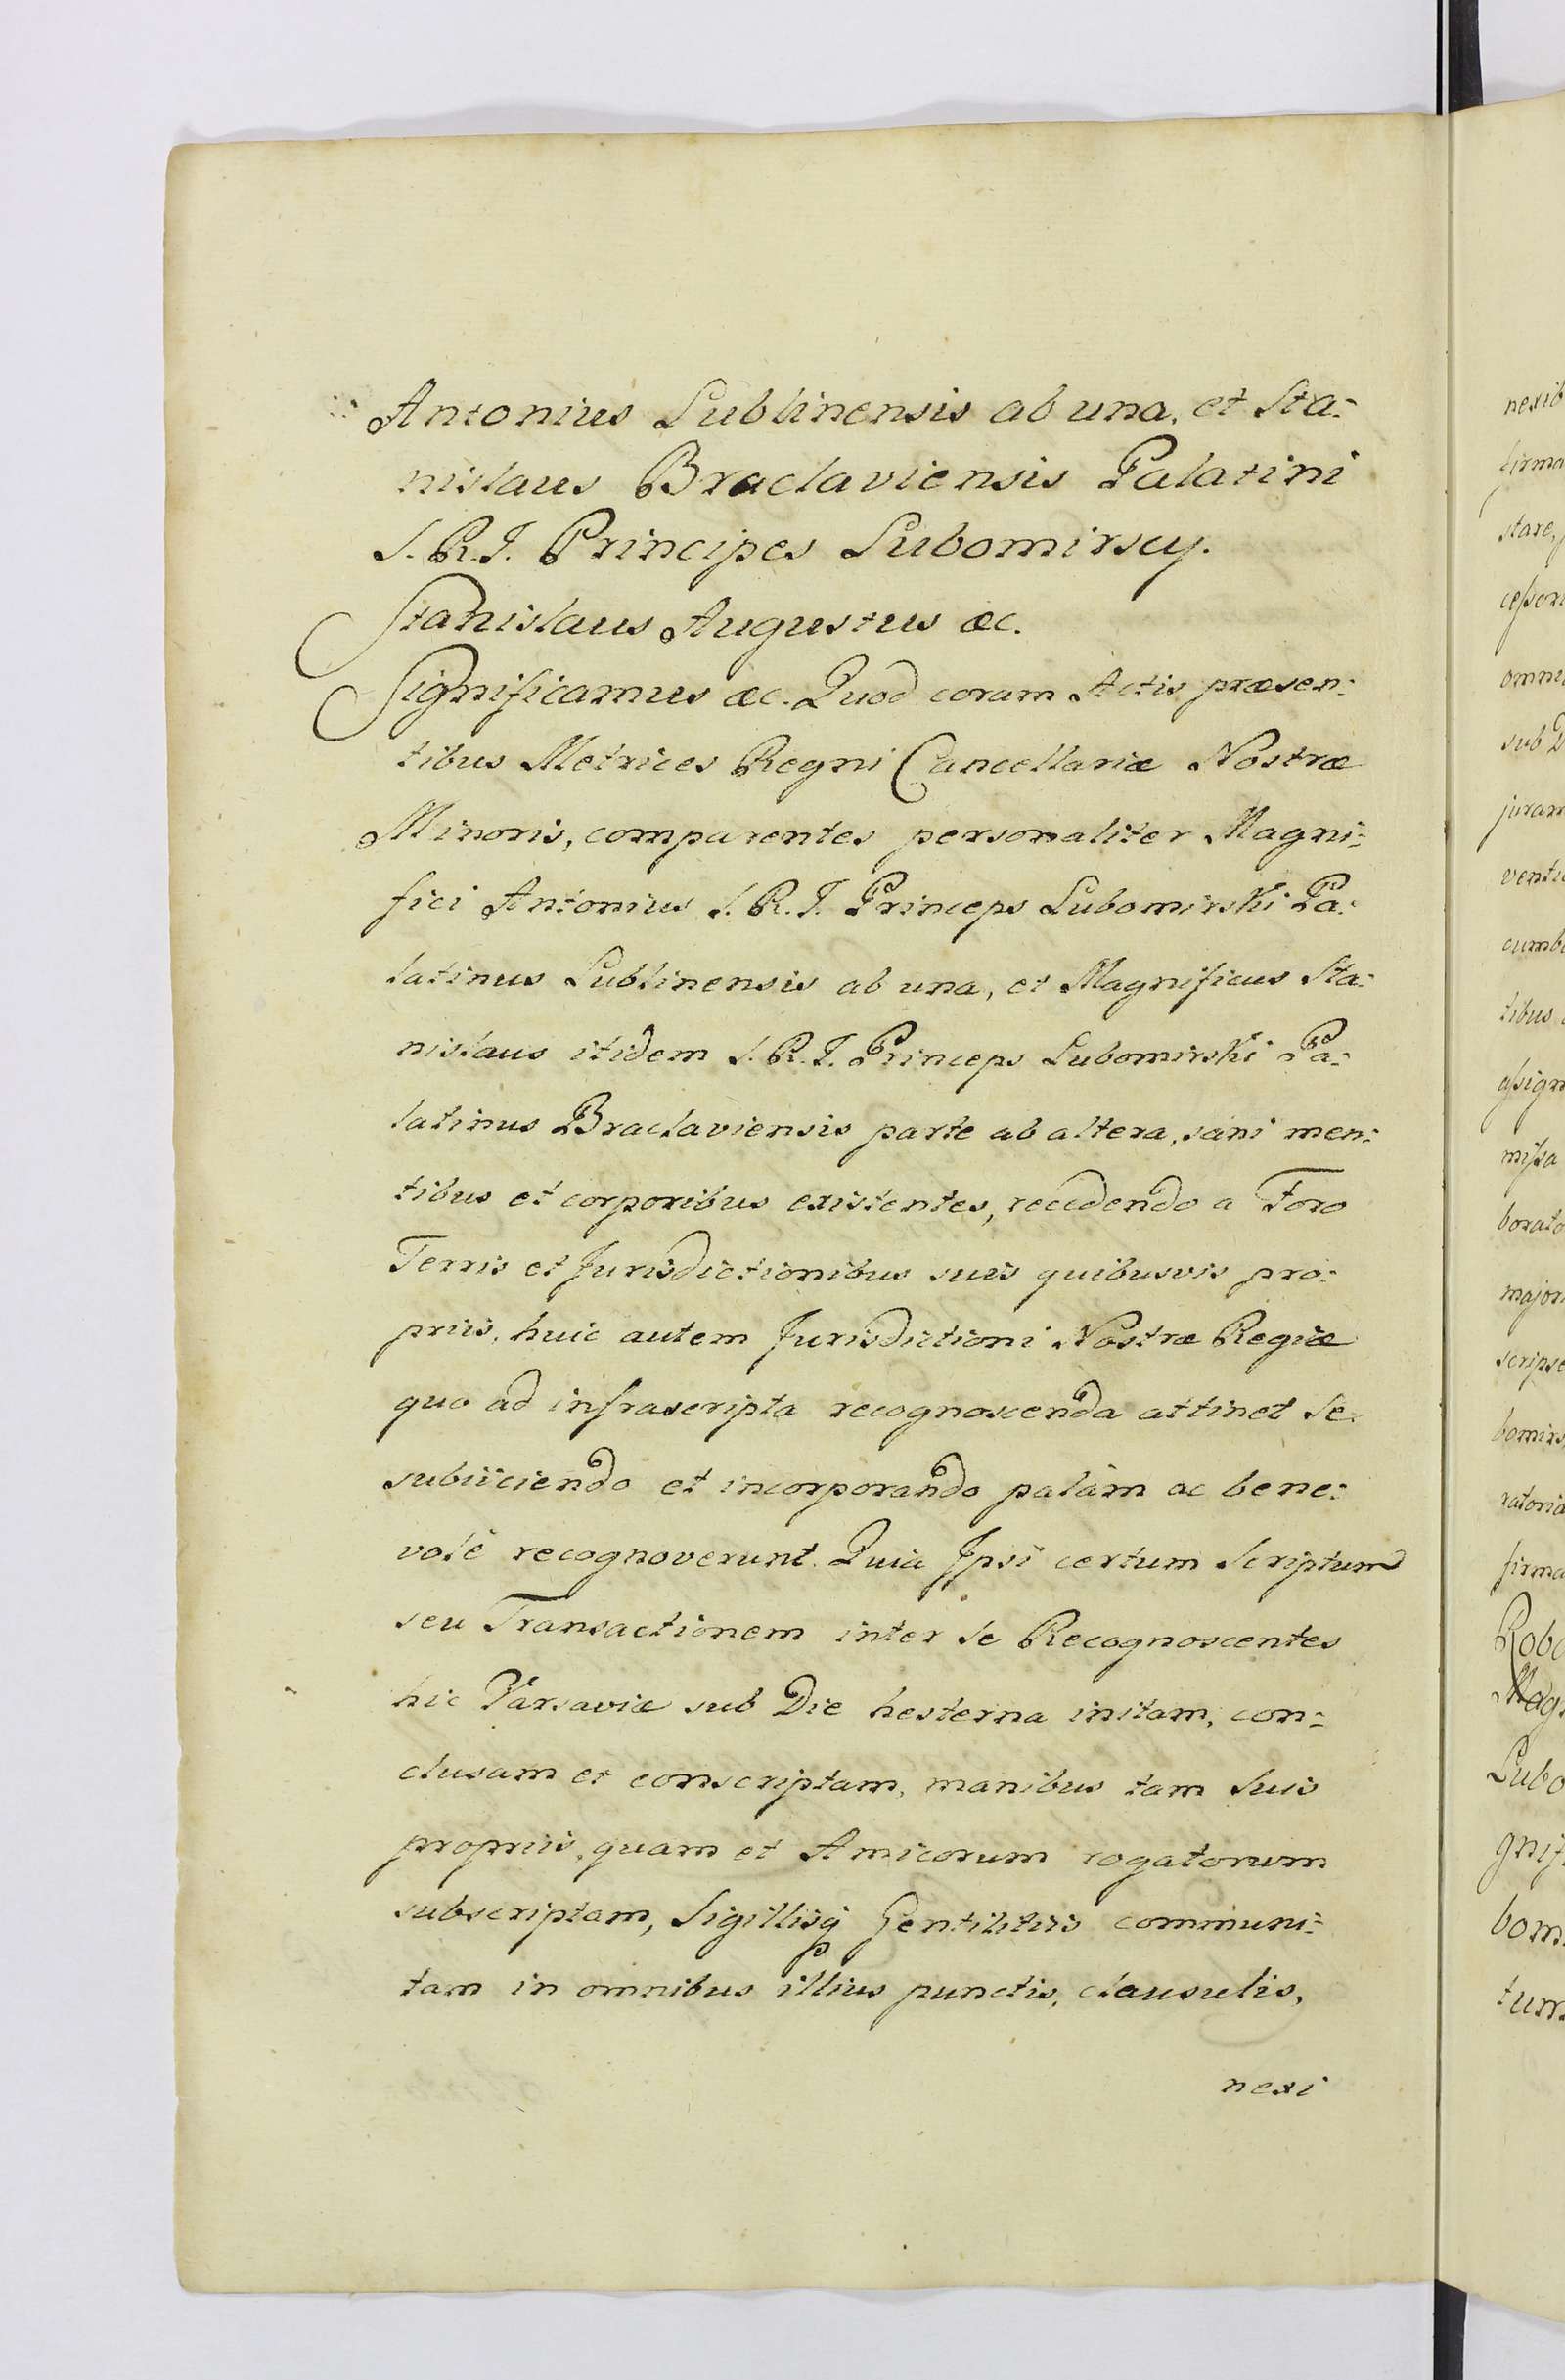 Antonius Lublinensis ab una, et Sta:
nislaus Braclaviensis Palatini
S. R. I. Principes Lubomirscy.
Stanislaus Augustus &c.
Significamus &c. Quod coram Actis præsen:
tibus Metrices Regni Cancellariæ Nostræ
Minoris, comparentes personaliter Magni:
fici Antonius S. R. I. Princeps Lubomirski Pa:
latinus Lublinensis ab una, et Magnificus Sta:
nislaus itidem S. R. I. Princeps Lubomirski Pa:
latinus Braclaviensis parte ab altera, sani men:
tibus et corporibus existentes, recedendo a Foro
Terris et Jurisdictionibus suis quibusvis pro:
priis, huic autem Jurisdictioni Nostræ Regiæ
quo ad infrascripta recognoscenda attinet Se
subiiciendo et incorporando palàm ac bene:
volè recognoverunt. Quia Ipsi certum Scriptum
seu Transactionem inter Se Recognoscentes
hic Varsaviæ sub Die hesterna initam, con:
clusam et conscriptam, manibus tam Suis
propriis, quam et Amicorum rogatorum
subscriptam, Sigillisq Gentilitiis communi:
tam in omnibus illius punctis, clausulis,
nexi
nexib
firma
stare,
cessori
omni
sub
juram
venti
cumb
tibus
assign
missa
borato
major
scripse
bomirs
ratoria
firma
Robo
Mag
Lubo
gnif
bom
tum